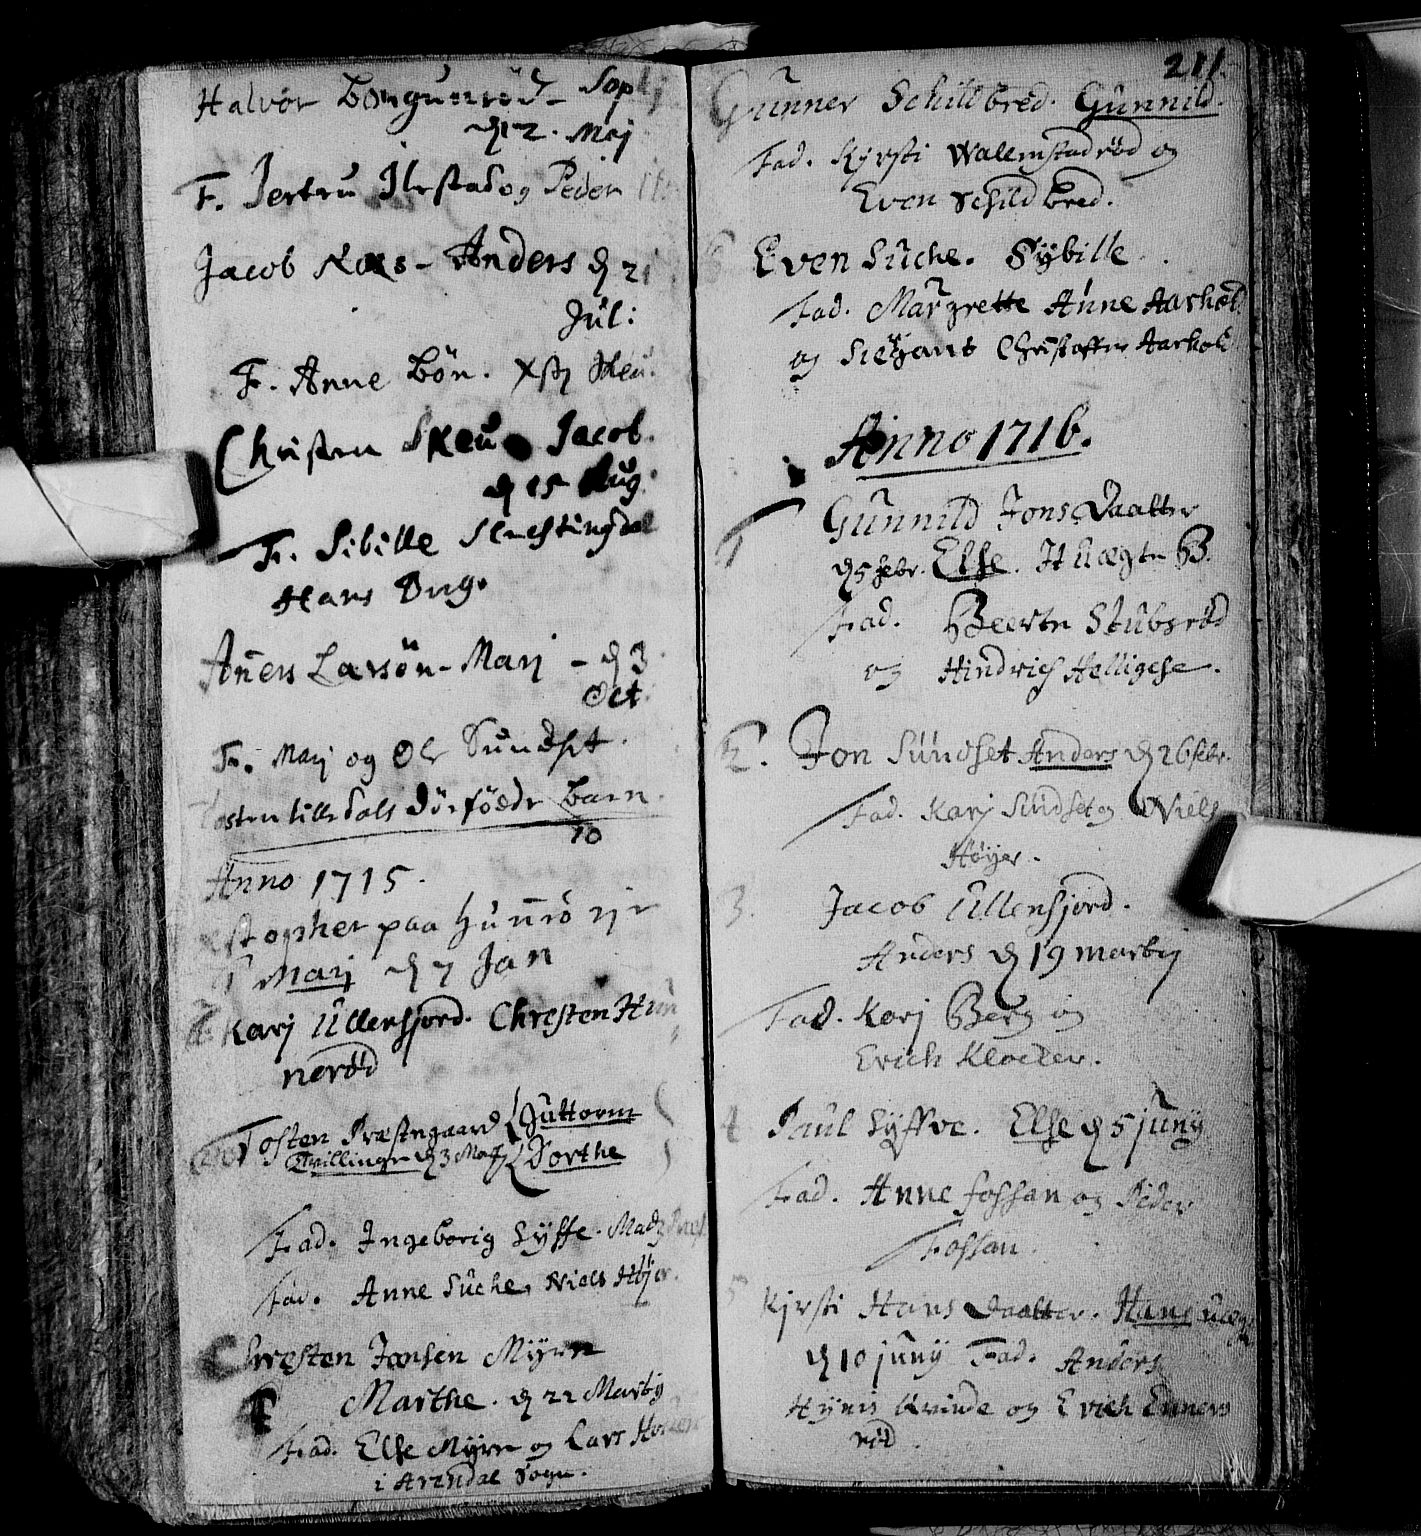 Halvor Borgunrød - Soph
d 12. Maj
F. Jertru Ilestad og Peder
Jacob Røes - Anders d 21
Jul:
F. Anne Bön. Xst Skeu.
Christen Skeu Jacob.
d 15 Aug.
F. Sibille
Hans Ong.
Aners Larsön - Mari - d 3
Oct.
F. Mari og Ole Sundset.
Tosten Lilledals dörföedde barn.
10
Anno 1715.
stopher paa Hunnrö
1 Marj d 7 Jan
F. Karj Ullensjord. Chresten Hun
nerød
Tosten Præstegaard Guttorm
Tvillinger d 3 Maj Dorthe
Fad. Ingeborig Syffe. Madz
Fad. Anne Suche, Niels Höjer.
Chresten Jansen Myren
Marthe. d 22 Martij
Fad. Else Myren og Lars
i Arendal Sogn.
211.
Gunner Schilbred. Gunnild.
Fad. Kyrsti Walemstadrød og
Even Schildbred.
Even Suche. Sybille.
Fad. Margrette Anne Aarhold
og Siezant Christoffer Aarhold
Anno 1716.
1 Gunnild Jons Daatter
d 5 febr. Else. U Ægte B.
Fad. Beerte Stubsrød
og Hindrich Helligese.
2. Jon Sundset Anders d 26 febr.
Fad. Karj Sundset og Niels
Höyer.
3. Jacob Ullensjord.
Anders d 19 martij
Fad. Karj Berg og
Erich Klocker.
4 Paul Syffve. Else d 5 juny
Fad. Anne Fossan og Peder
Fossan.
5 Kjrsti Hans Daatter. Hans uægte
d 10 juny Fad. Anders
Hynis Kvinde og Erich Enners
rød.